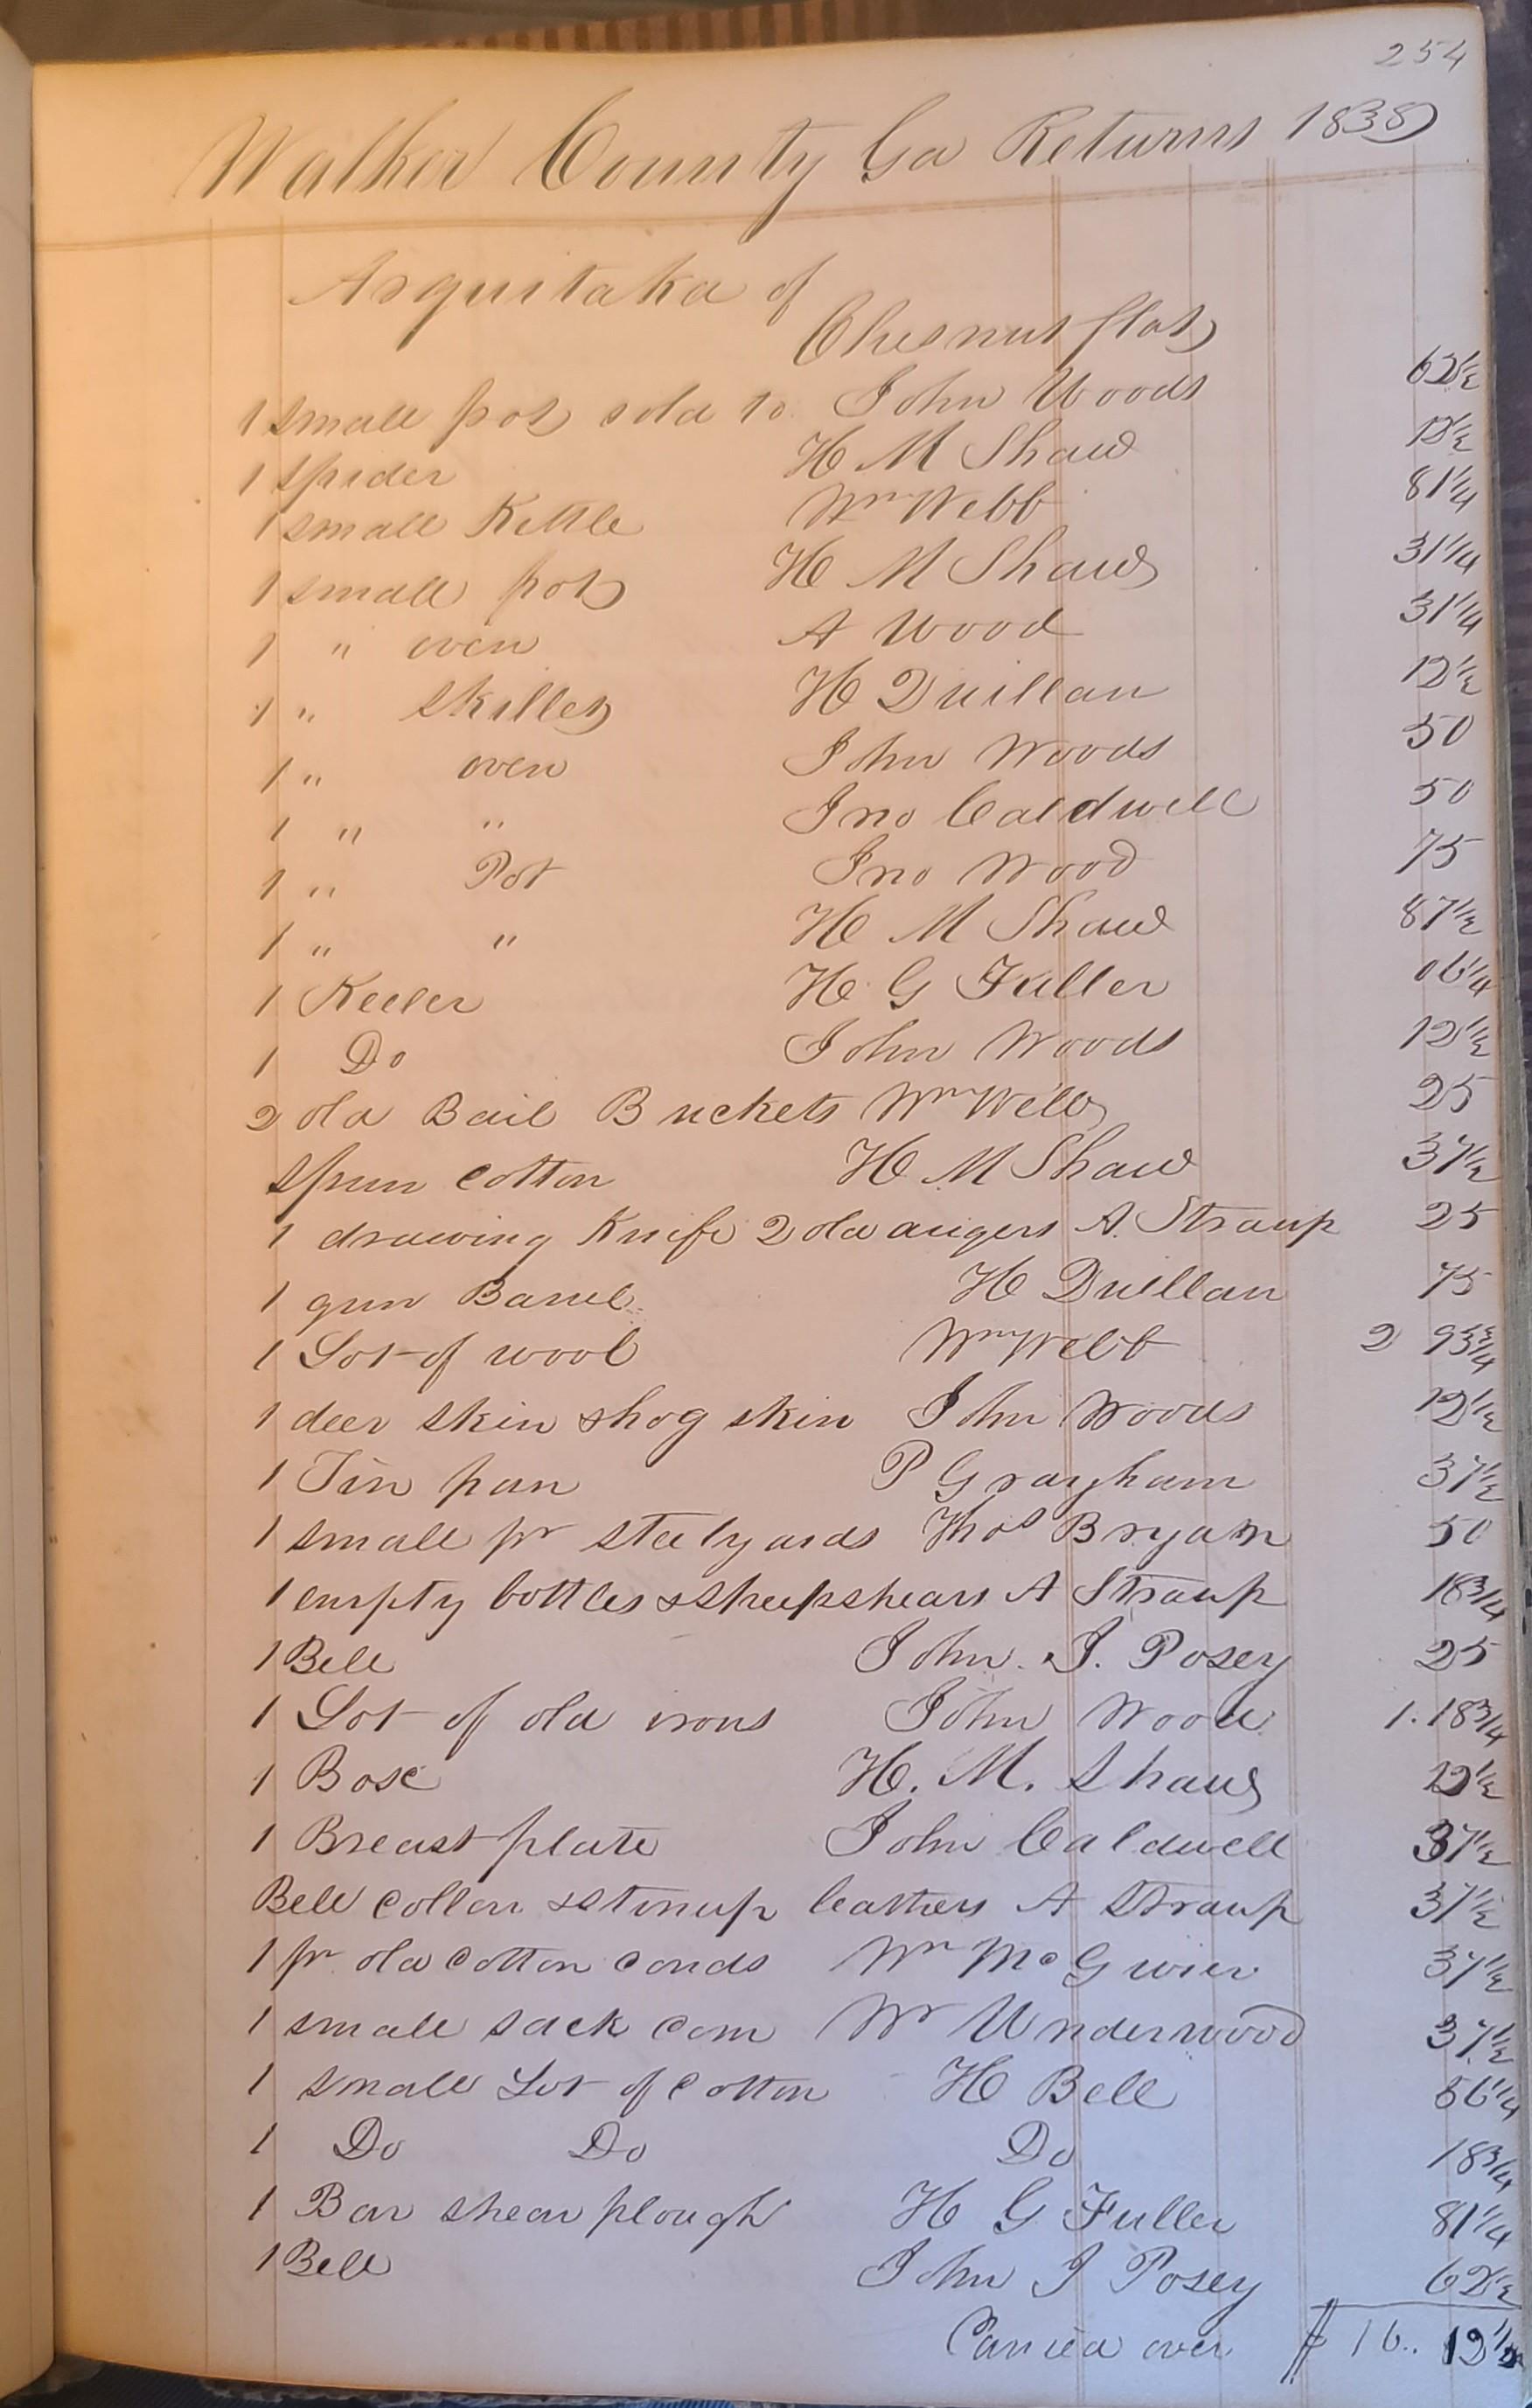 254
Walker County Ga Returns 1838
Asquitaka of
Chesnut flat
1 small pot sold to John Woods 62½
1 spider H M Shaw 12½
1 small Kettle Wm Webb 81¼
1 small pot H M Shaw 31¼
1 " oven A Wood 31¼
1 " skillet H Duillan 12½
1 " oven John Woods 50
1 " " Jno Caldwell 50
1 " Pot Jno Wood 75
1 " " H M Shaw 87½
1 Keeler H G Fuller 06¼
1 Do John Woods 12½
2 old Bail Buckets Wm Webb 25
Spun cotton H M Shaw 37½
1 drawing Knife 2 old augers A. Straup 25
1 gun Barrel H Duillan 75
1 Lot of wool Wm Webb 2 93¾
1 deer skin & hog skin John Woods 12½
1 Tin pan P Grayham 37½
1 small pr steelyards Thos Bryam 50
1 empty bottles & sheepshears A Straup 18¾
1 Bell John J. Posey 25
1 Lot of old irons John Wood 1.18¾
1 Bose H. M. Shaw 12½
1 Breast plate John Caldwell 37½
Bell collar & stirrup leathers A Straup 37½
1 pr old cotton cards Wm McGwier 37½
1 small sack corn Wm Underwood 37½
1 small Lot of cotton H Bell 56¼
1 Do Do Do 18¾
1 Bar shear plough H G Fuller 81¼
1 Bell John J Posey 62½
Carried over $16..12½